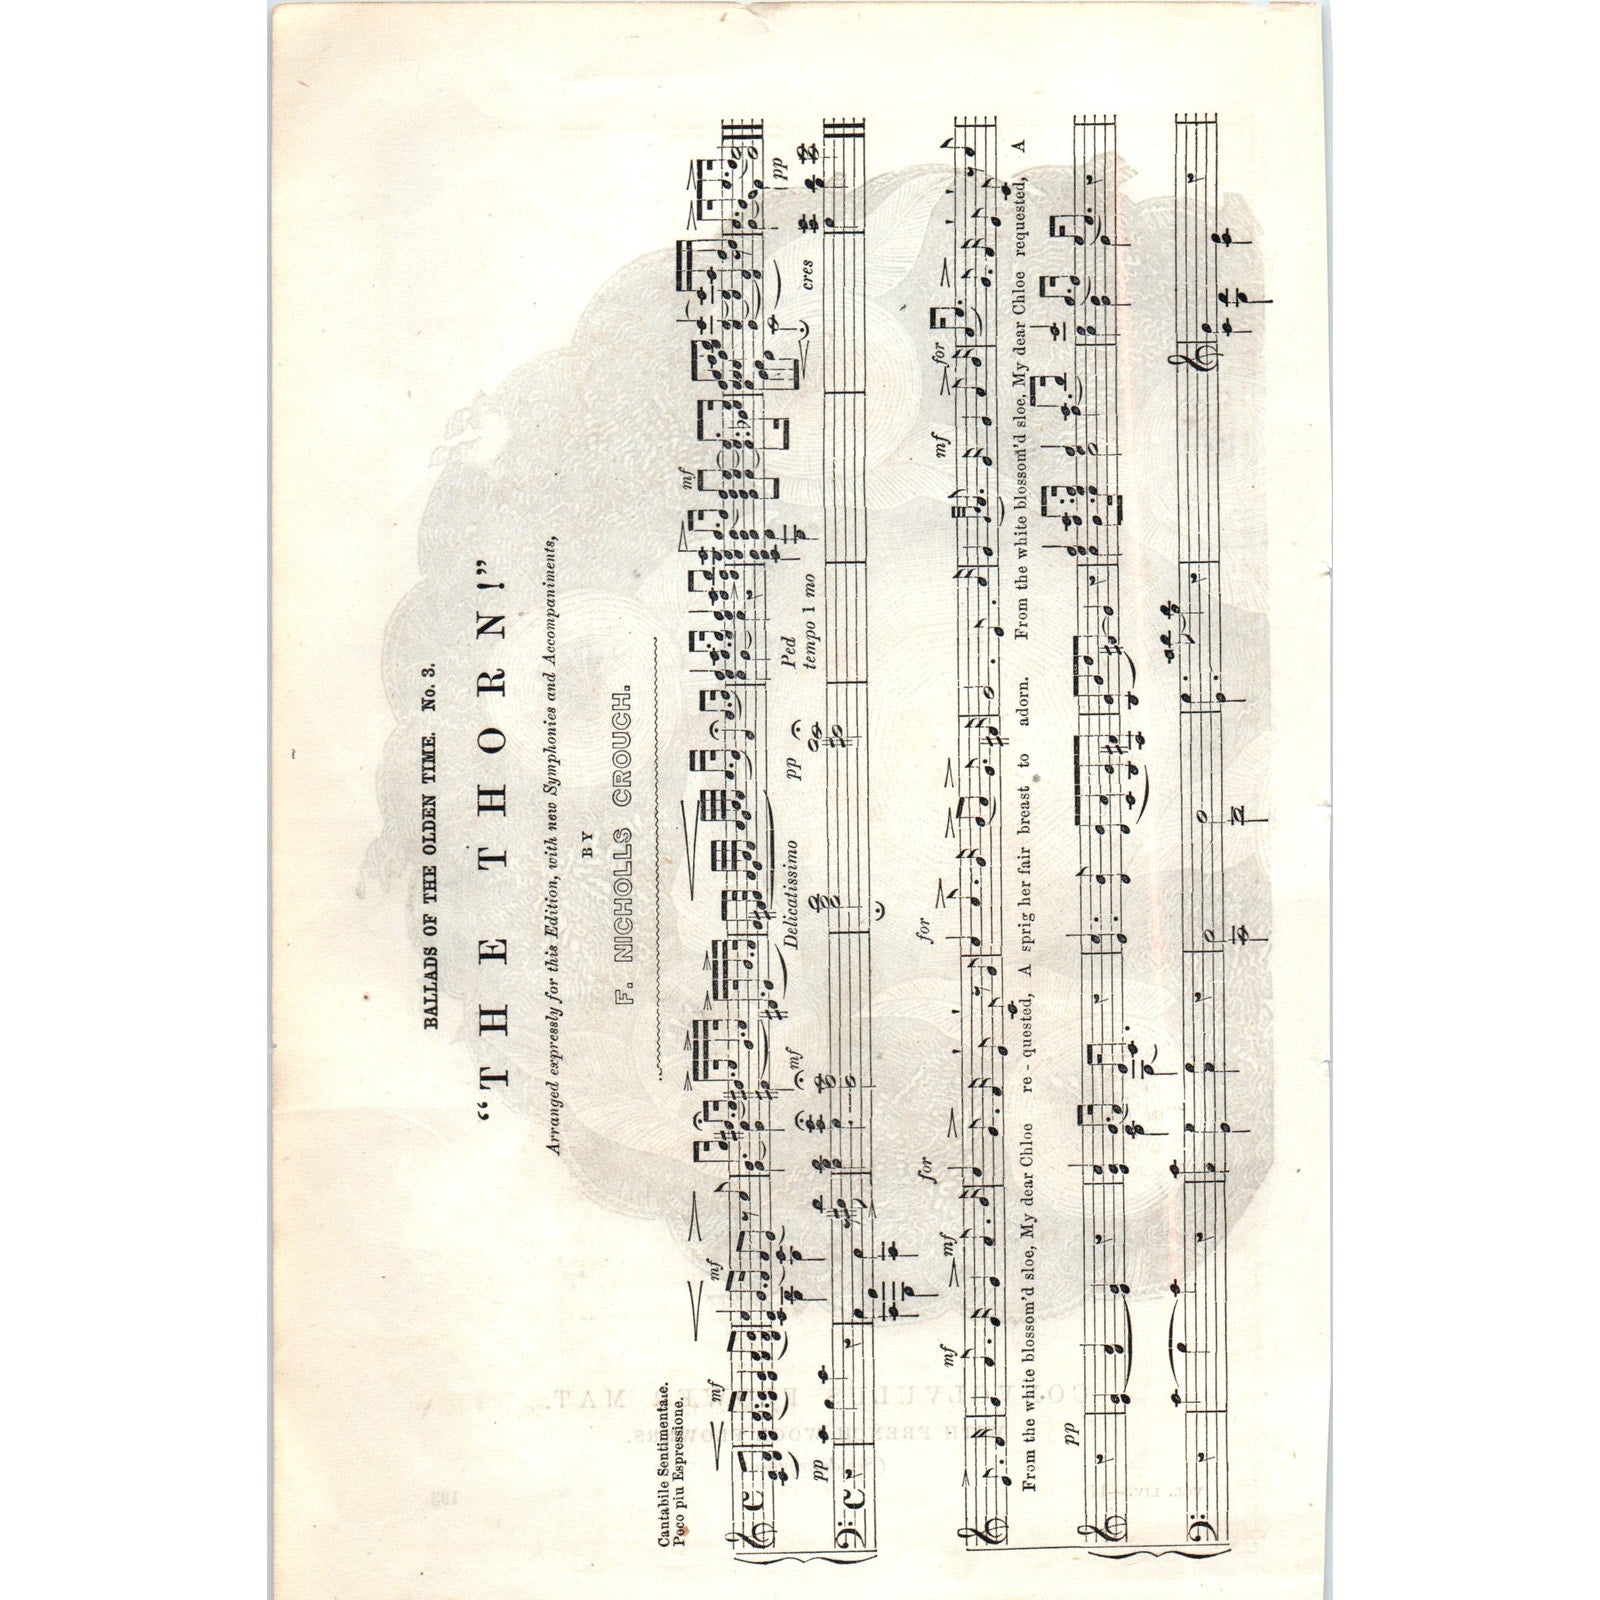 BALLADS OF THE OLDEN TIME. No. 3.
“THE THORN!”
Arranged expressly for this Edition, with new Symphonies and Accompaniments,
BY
F. NICHOLLS CROUCH.
Cantabile Sentimentale.
Poco piu Espressione.
mf mf mf
pp mf Delicatissimo pp Ped tempo 1 mo cres pp
mf mf for for mf for
From the white blossom'd sloe, My dear Chloe re - quested, A sprig her fair breast to adorn. From the white blossom'd sloe, My dear Chloe requested, A
pp